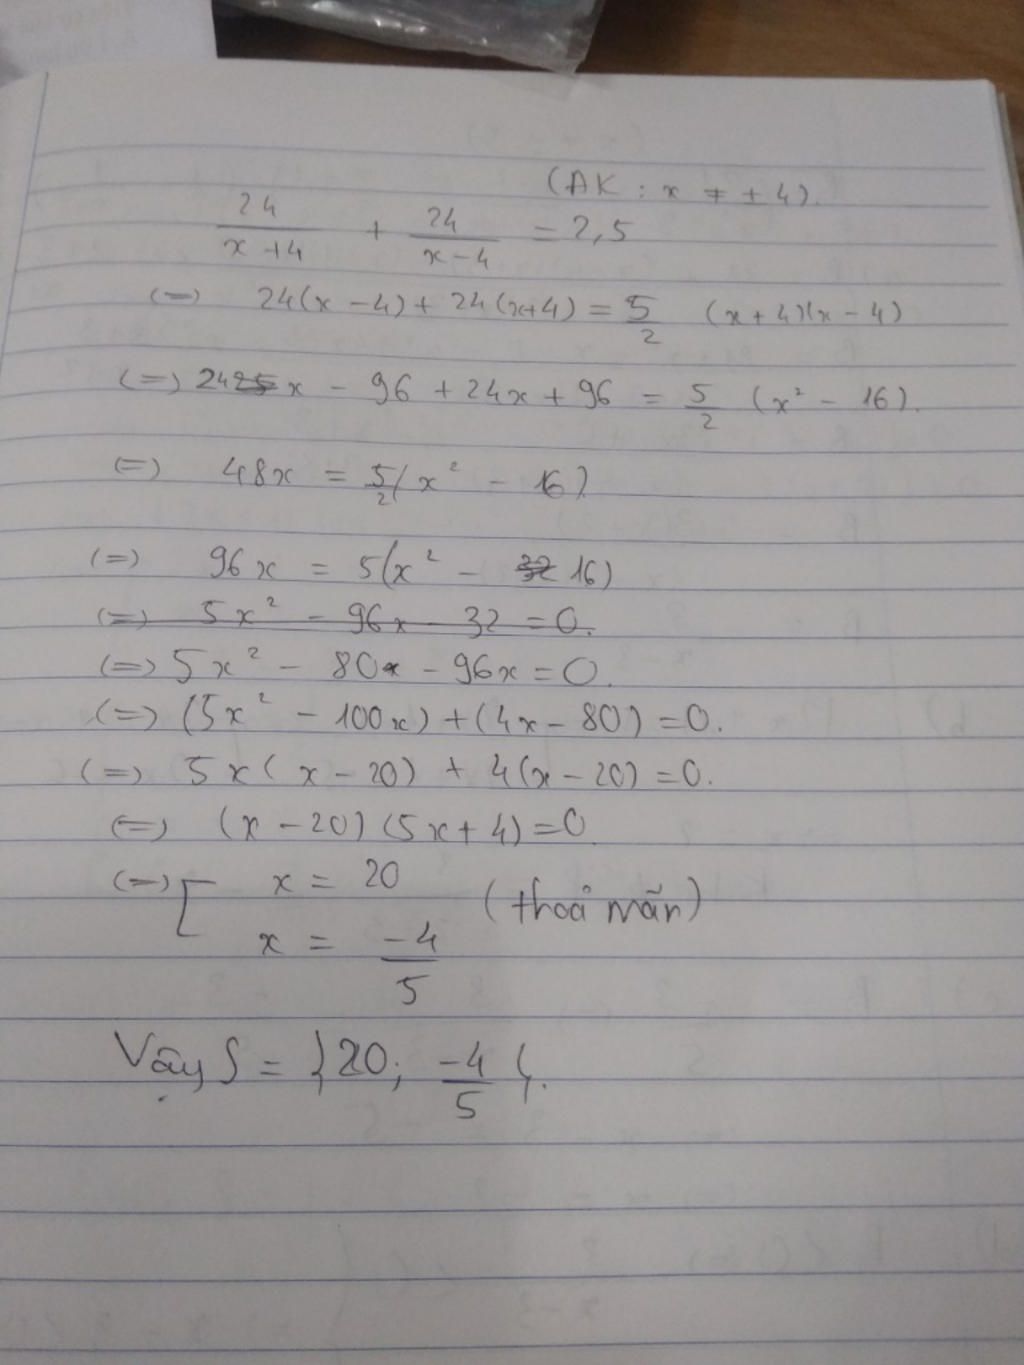 (ĐK : x ≠ ± 4).
24/(x+4) + 24/(x-4) = 2,5
(=) 24(x - 4) + 24(x+4) = 5/2 (x+4)(x-4)
(=) 24x - 96 + 24x + 96 = 5/2 (x² - 16).
(=) 48x = 5/2(x² - 16)
(=) 96x = 5(x² - 16)
(=) 5x² - 96x - 32 = 0.
(=) 5x² - 80 - 96x = 0.
(=) (5x² - 100x) + (4x - 80) = 0.
(=) 5x(x - 20) + 4(x - 20) = 0.
(=) (x - 20)(5x + 4) = 0
(=) [ x = 20
x = -4/5 (thoả mãn)
Vậy S = {20; -4/5}.